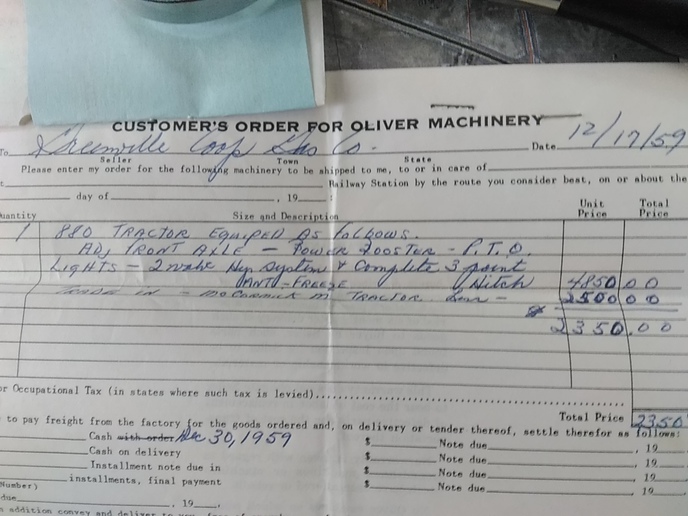 CUSTOMER'S ORDER FOR OLIVER MACHINERY
To Greenville Coop Gas Co. Date 12/17/59
Seller Town State
Please enter my order for the following machinery to be shipped to me, to or in care of
Railway Station by the route you consider best, on or about the
day of , 19 :
Quantity Size and Description Unit Price Total Price
1 880 TRACTOR EQUIPED AS FOLLOWS.
ADJ FRONT AXLE - POWER BOOSTER - P.T.O.
LIGHTS - 2 Hyd System & Complete 3 point
ANTI-FREEZE Hitch 4850 00
TRADE IN - McCORMICK M TRACTOR Less - 2500 00
2350.00
or Occupational Tax (in states where such tax is levied)
Total Price 2350
to pay freight from the factory for the goods ordered and, on delivery or tender thereof, settle therefor as follows:
Cash with order Dec 30, 1959 $ Note due , 19
Cash on delivery $ Note due , 19
Installment note due in $ Note due , 19
installments, final payment $ Note due , 19
Number)
due , 19
addition convey and deliver to